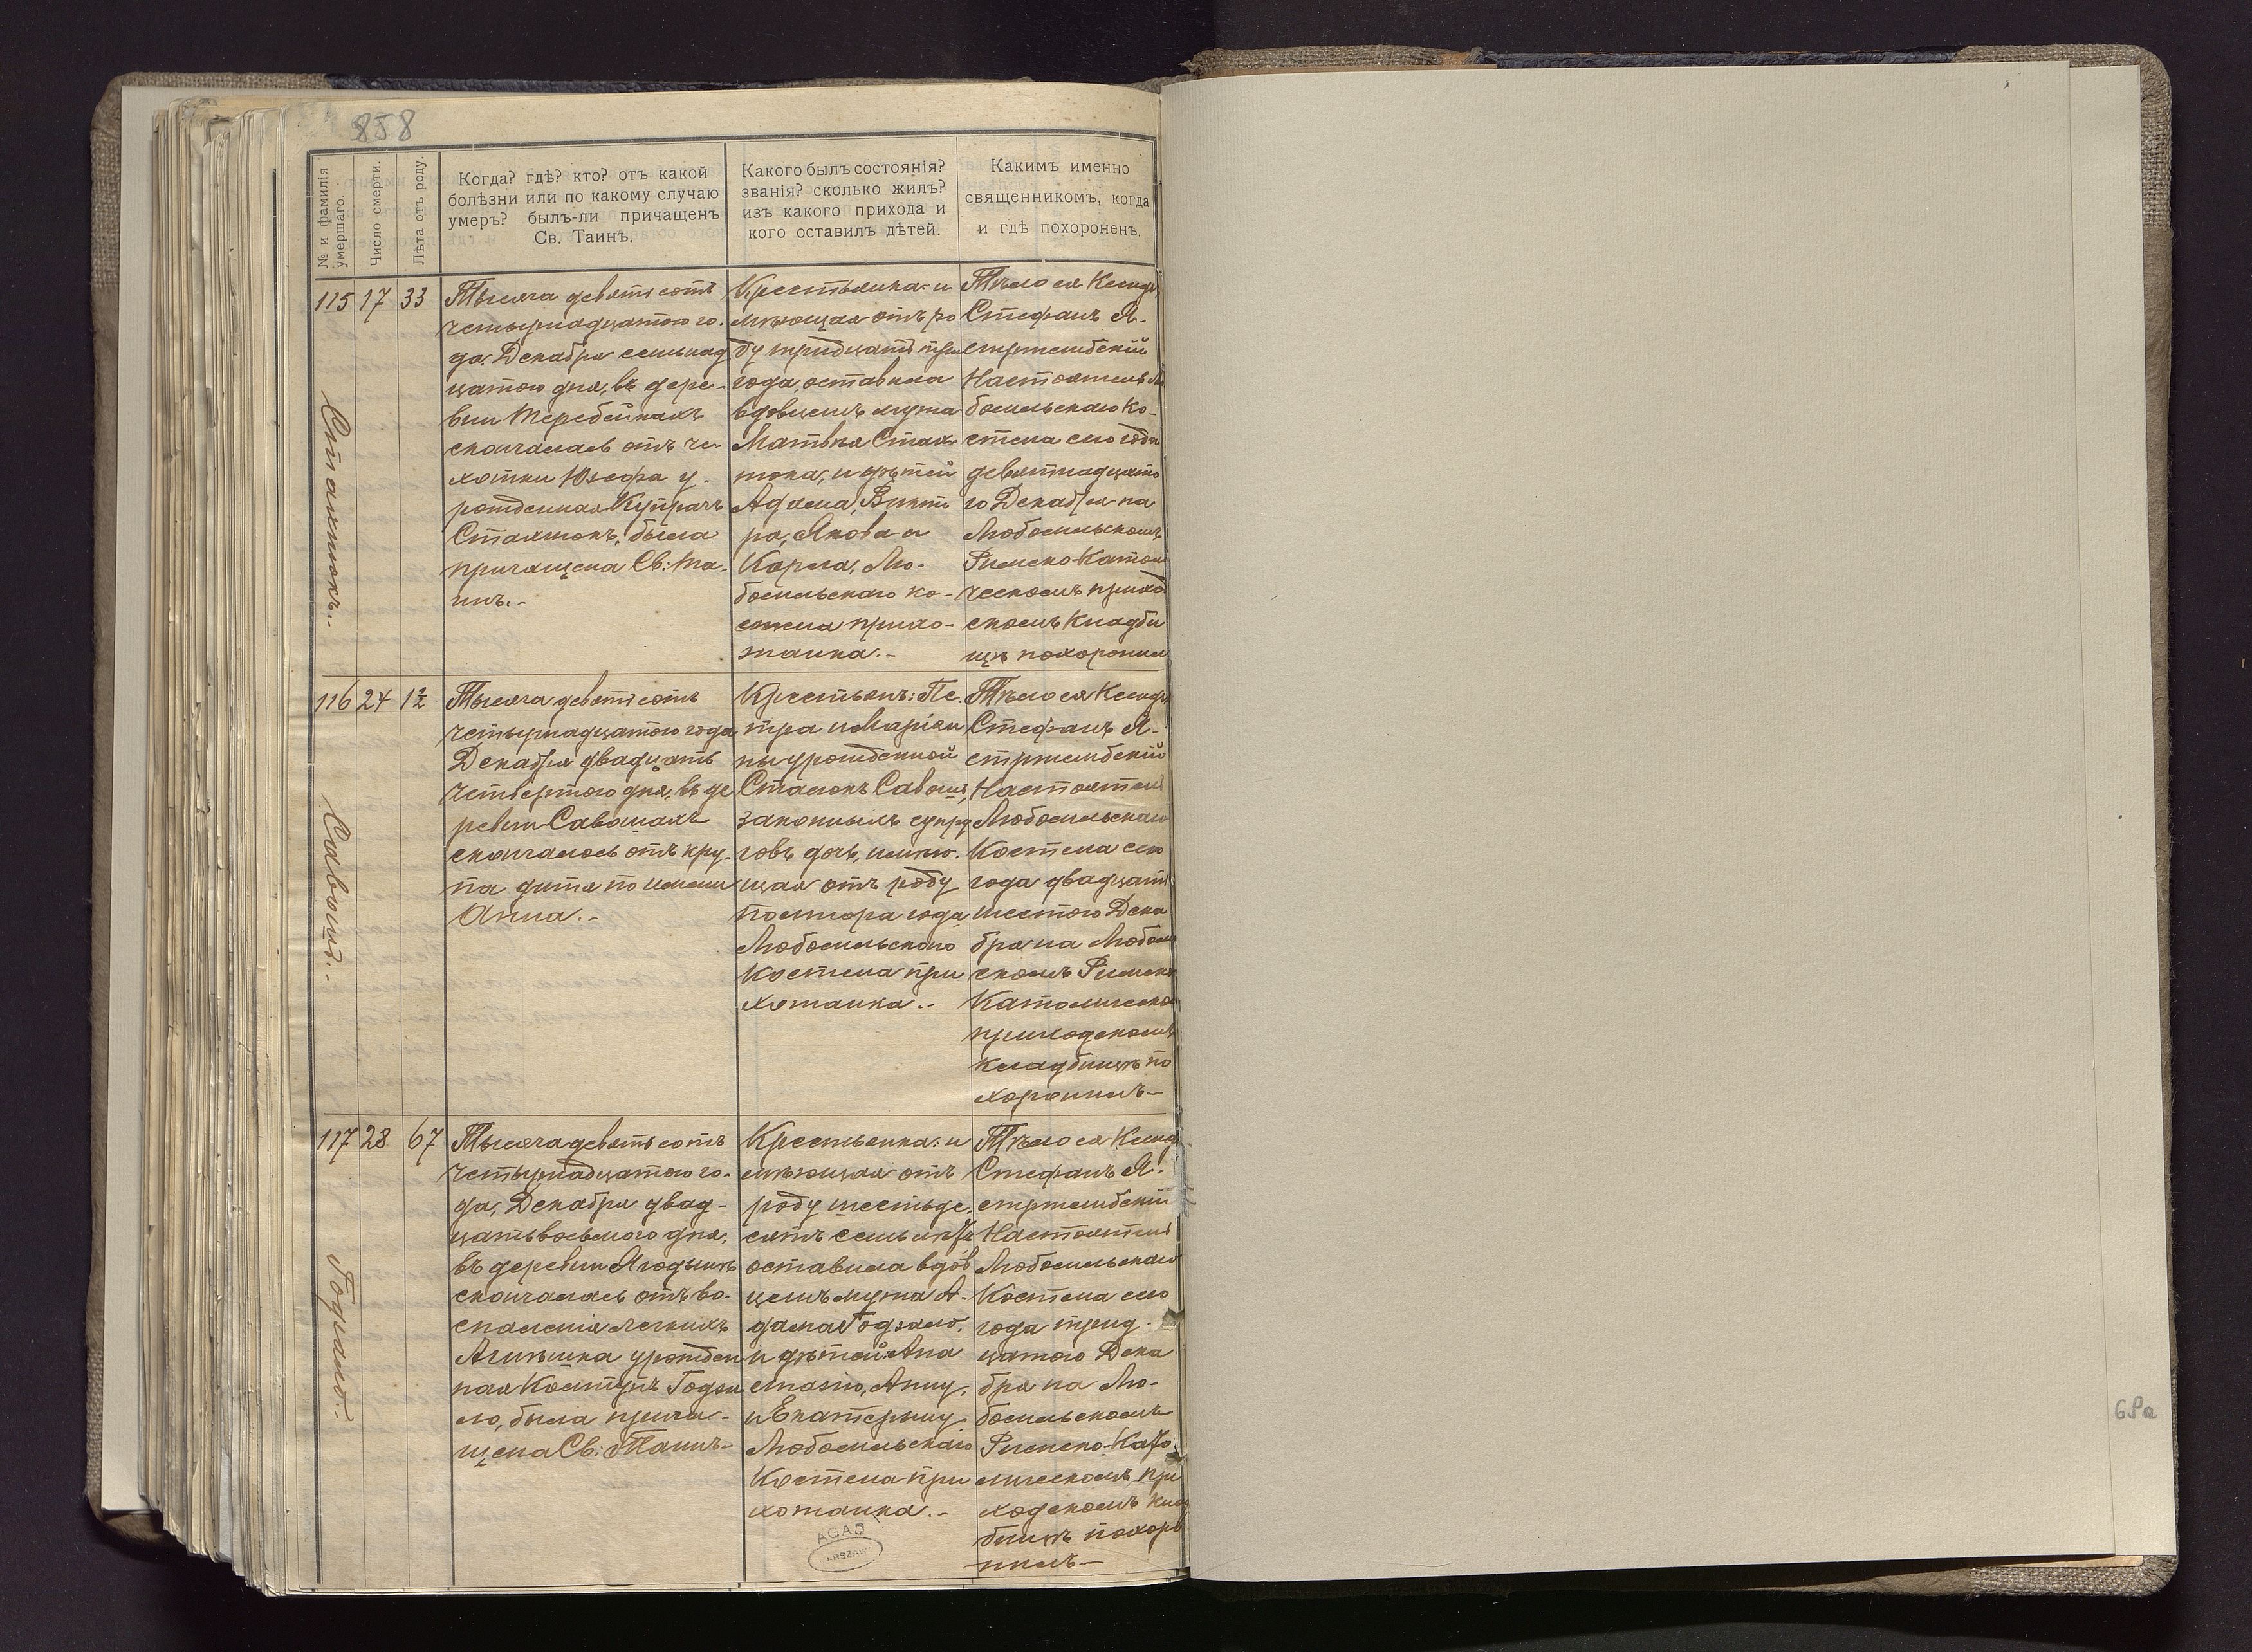 858
№ и фамилія
умершаго.
Число смерти.
Лѣта отъ роду.
Когда? гдѣ? кто? отъ какой
болѣзни или по какому случаю
умеръ? былъ-ли причащенъ
Св. Таинъ.
Какого былъ состоянія?
званія? сколько жилъ?
изъ какого прихода и
кого оставилъ дѣтей.
Каким именно
священникомъ, когда
и гдѣ похороненъ.
115 17 33
Стахнюкъ.-
Тысяча девятьсотъ
четырнадцатого го-
да, Декабря семьнад
цатого дня, въ дере-
вни Теребейкахъ
скончалась отъ ча-
хотки Юзефа у-
рожденная Купрачъ
Стахнюкъ, была
причащена Св: Та-
инъ.-
Крестьянка: и
мѣющая отъ ро
ду тридцать три
года, оставила
вдовцемъ мужа
Матвѣя Стах
нюка, и дѣтей
Адама, Викто
ра, Якова и
Карла, Лю-
бомльскаго ко-
стела прихо-
жанка.-
Тѣло ея Ксендз
Стефанъ Я-
стржембскій
Настоятель Лю
бомльскаго Ко-
стела сего года
девятнадцато
го Декабря на
Любомльскомъ
Римско-Католи
ческомъ приход
скомъ Кладби
щѣ похоронил
116 24 1½
Савошъ.-
Тысяча девятьсотъ
четырнадцатого года
Декабря двадцать
четвертого дня, въ де
ревни Савошахъ
скончалось отъ кру-
па дитя по имени
Анна.-
Крестьянъ: Пе-
тра и Маріан
ны урожденной
Сталюкъ Савошъ,
законныхъ супру
говъ дочь, имѣю-
щая отъ роду
полтора года
Любомльскаго
Костела при
хожанка.-
Тѣло ея Ксендз
Стефанъ Я-
стржембскій
Настоятель
Любомльскаго
Костела сего
года двадцать
шестого Дека
бря на Любомль
скомъ Римско
Католическом
приходскомъ
Кладбищѣ по
хоронилъ-
117 28 67
Годзало.-
Тысяча девятьсотъ
четырнадцатого го-
да, Декабря двад-
цать восьмого дня,
въ деревни Ягодынѣ
скончалась отъ во-
спаленія легкихъ
Агнѣшка урожден
ная Колтунъ Годза
ло, была прича-
щена Св: Таинъ-
Крестьянка: и
мѣющая отъ
роду шестьде-
сятъ семь лѣтъ
оставила вдов
цемъ мужа А-
дама Годзало,
и дѣтей: Апа
лонію, Анну,
и Екатерину
Любомльскаго
Костела при
хожанка.-
Тѣло ея Ксендз
Стефанъ Я-
стржембскій
Настоятель
Любомльскаго
Костела сего
года трид-
цатого Дека
бря на Лю-
бомльскомъ
Римско-Като-
лическомъ при
ходскомъ Клад
бищѣ похоро
нилъ-
AGAD
68a